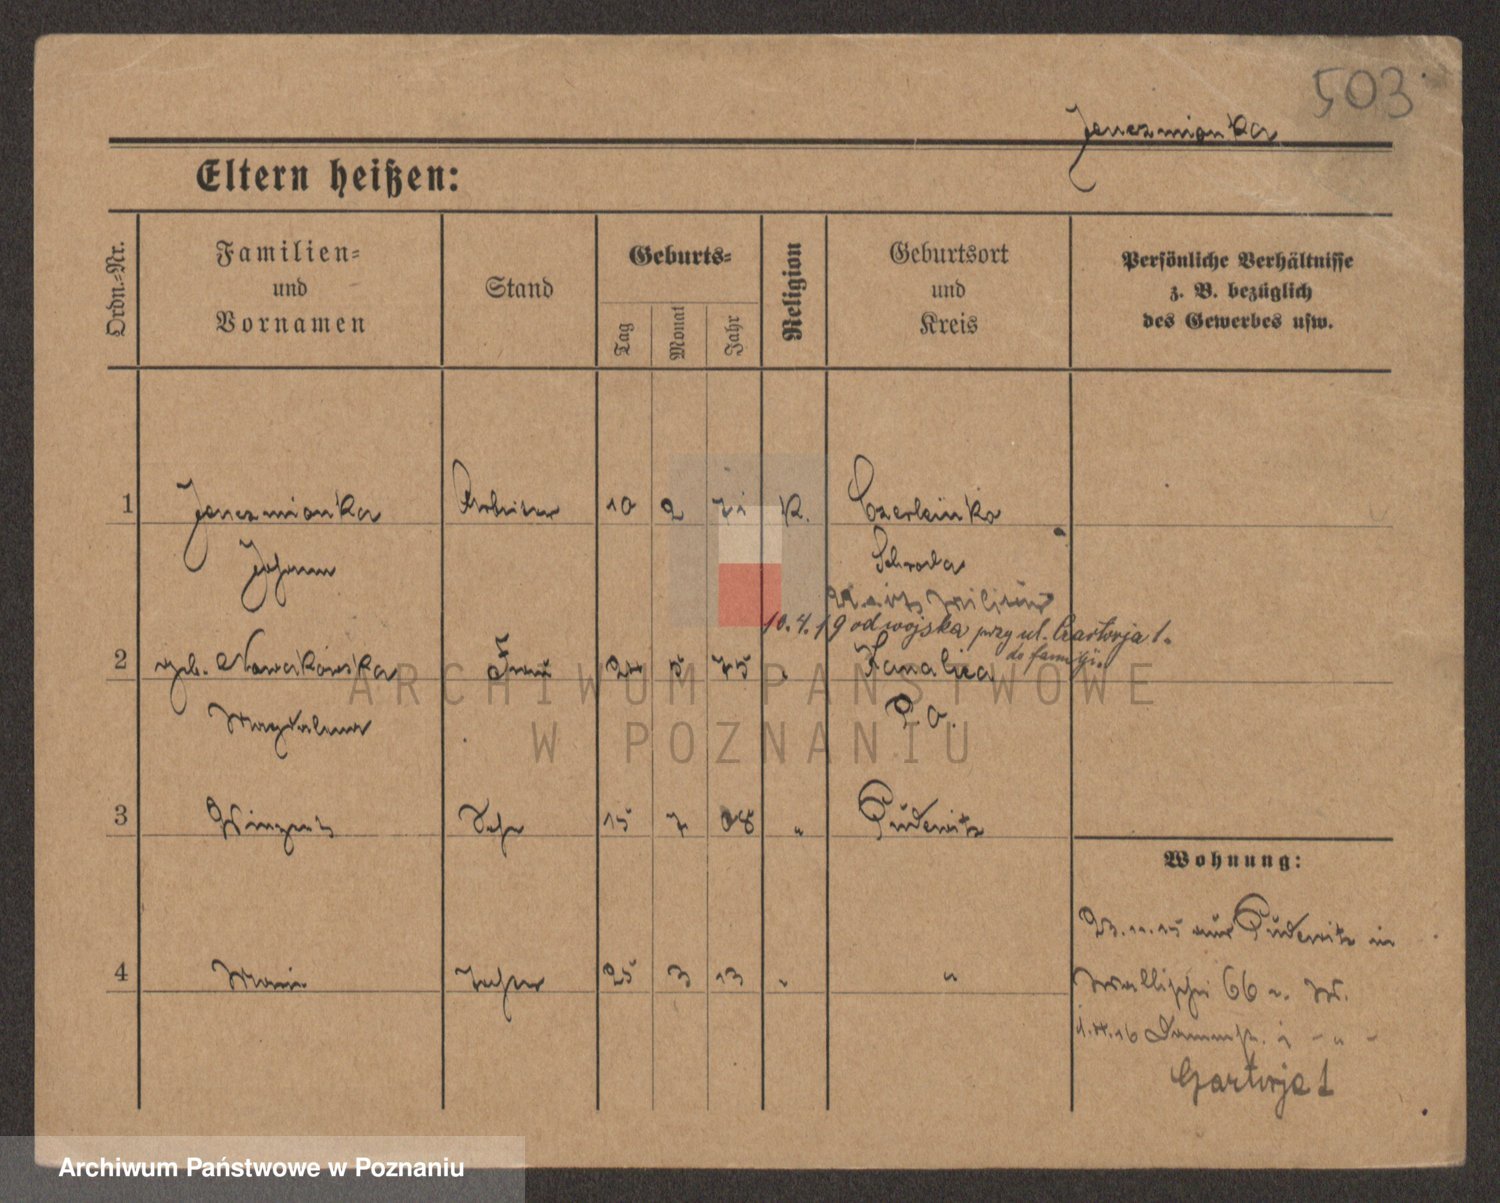 503
Jenczmionka
Eltern heißen:
Ordn.-Nr.
Familien-
und
Vornamen
Stand
Geburts-
Tag
Monat
Jahr
Religion
Geburtsort
und
Kreis
Persönliche Verhältnisse
z. B. bezüglich
des Gewerbes usw.
1 Jenczmionka Arbeiter 10 2 71 K. Czerleinko
Johann Schroda
10.4.19 od wojska przy ul. Czartorja 1.
do familji
2 geb. Nowakowska Frau 5 75 "
Magdalena P. O.
3 Winzent Sohn 15 7 08 " Pudewitz
Wohnung:
23.11.15 aus Pudewitz in
4 Maria Tochter 25 3 13 " "
Wallischei 66
1.4.16 Dammstr. - " -
Czartorja 1
ARCHIWUM PAŃSTWOWE
W POZNANIU
Archiwum Państwowe w Poznaniu